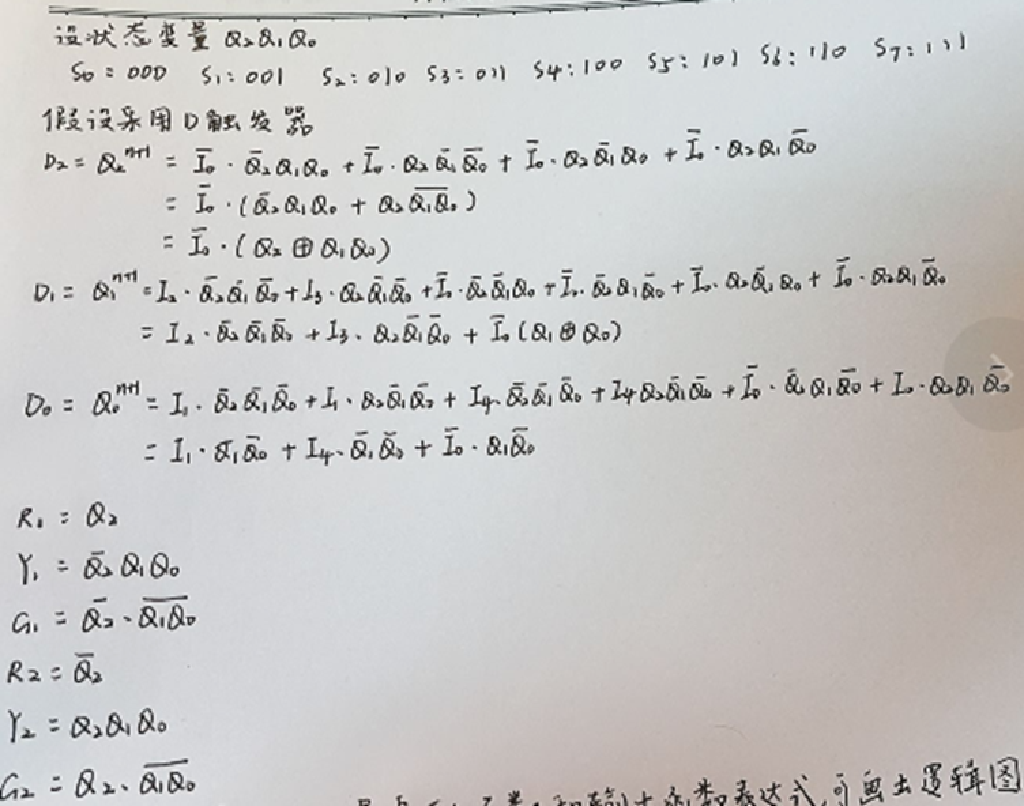 设状态变量 Q₂Q₁Q₀
S₀:000 S₁:001 S₂:010 S₃:011 S₄:100 S₅:101 S₆:110 S₇:111
假设采用D触发器
D₂ = Q₂ⁿ⁺¹ = I̅₀·Q̅₂Q₁Q₀ + I̅₀·Q₂Q̅₁Q̅₀ + I̅₀·Q₂Q̅₁Q₀ + I̅₀·Q₂Q₁Q̅₀
= I̅₀·(Q̅₂Q₁Q₀ + Q₂\overline{Q₁Q₀})
= I̅₀·(Q₂⊕Q₁Q₀)
D₁ = Q₁ⁿ⁺¹ = I₂·Q̅₂Q̅₁Q̅₀ + I₃·Q₂Q̅₁Q̅₀ + I̅₀·Q̅₂Q̅₁Q₀ + I̅₀·Q̅₂Q₁Q̅₀ + I̅₀·Q₂Q̅₁Q₀ + I̅₀·Q₂Q₁Q̅₀
= I₂·Q̅₂Q̅₁Q̅₀ + I₃·Q₂Q̅₁Q̅₀ + I̅₀(Q₁⊕Q₀)
D₀ = Q₀ⁿ⁺¹ = I₁·Q̅₂Q̅₁Q̅₀ + I₁·Q₂Q̅₁Q̅₀ + I₄·Q̅₂Q̅₁Q̅₀ + I₄Q₂Q̅₁Q̅₀ + I̅₀·Q̅₂Q₁Q̅₀ + I₀·Q₂Q₁Q̅₀
= I₁·Q̅₁Q̅₀ + I₄·Q̅₁Q̅₀ + I̅₀·Q₁Q̅₀
R₁ = Q₂
Y₁ = Q̅₂Q₁Q₀
G₁ = Q̅₂·\overline{Q₁Q₀}
R₂ = Q̅₂
Y₂ = Q₂Q₁Q₀
G₂ = Q₂·\overline{Q₁Q₀}
表达式,可画出逻辑图